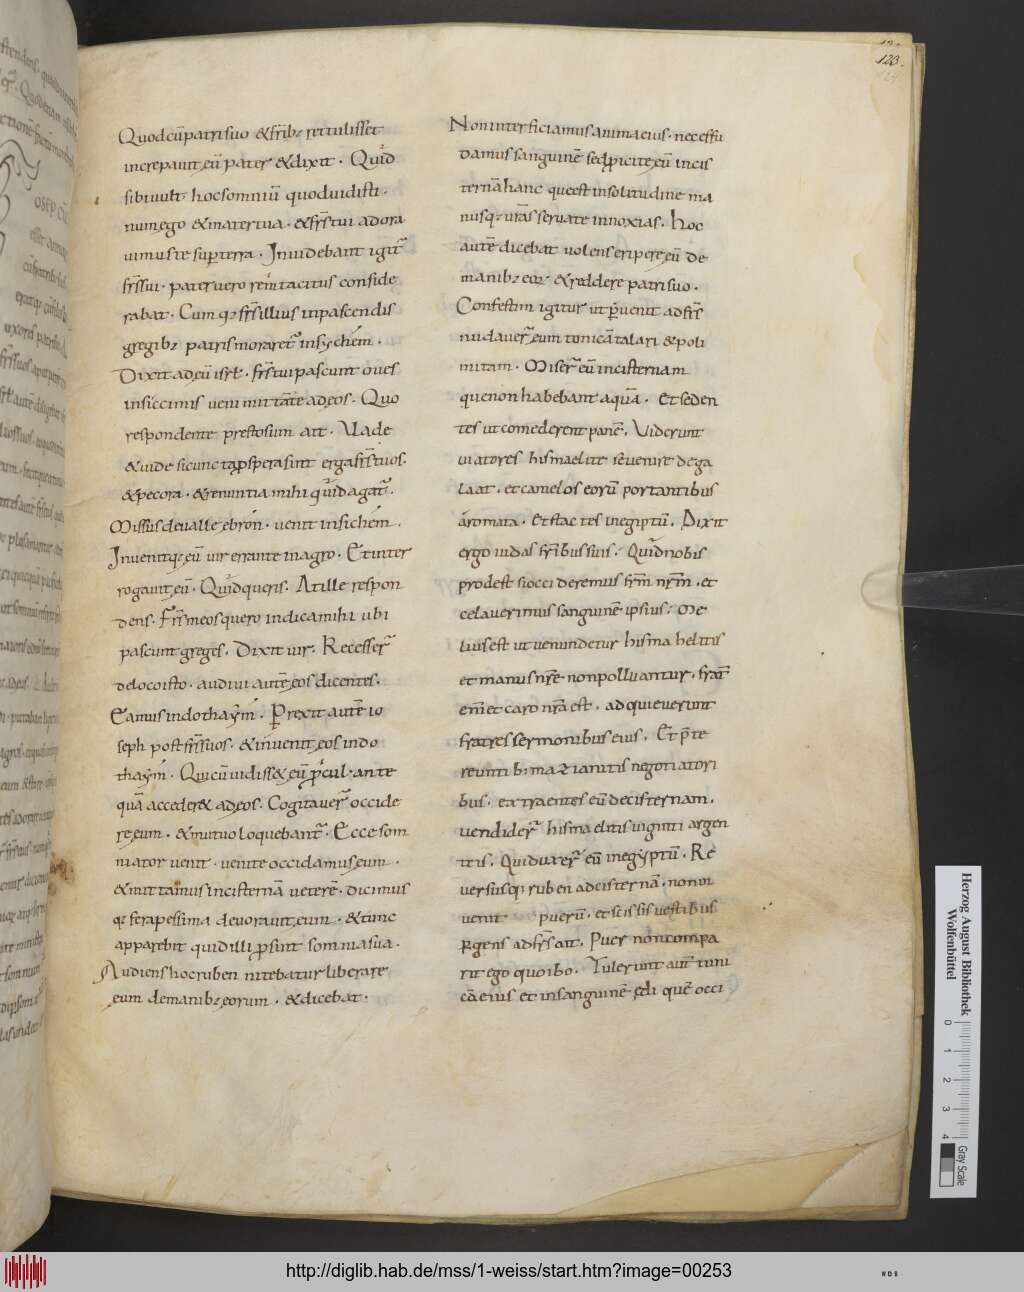 123.
Quodcū patri suo & fr̄ib; rettulisset
increpauit eū pater & dixit. Quid
sibi uult hoc somniū quod uidisti.
num ego & mater tua. & frs̄ tui adora
uimus te sup terra. Inuidebant igit̄
frs̄ sui. pater uero rem tacitus conside
rabat. Cumq; frs̄ illius in pascendis
gregib; patris moraret̄ in sychem.
Dixit ad eū isrl̄. frs̄ tui pascunt oues
in siccimis ueni mittāte ad eos. Quo
respondente presto sum ait. Uade
& uide si cuncta p̱spera sint erga frs̄ tuos.
& pecora. & renuntia mihi quid agat̄.
Missus de ualle ebron. uenit in sichem.
Inuenitq; eū uir errante in agro. Et inter
rogauit eū. Quid queris. At ille respon
dens. Frs̄ meos quero indica mihi ubi
pascunt greges. Dixit uir. Recesser̄
de loco isto. audiui autē eos dicentes.
Eamus in dothaym. Prexit autē io
seph post frs̄ suos. & inuenit eos in do
thaym. Qui cū uidiss& eū p̱cul. ante
quā acceder& ad eos. Cogitauer̄ occide
re eum. & mutuo loquebant̄. Ecce som
niator uenit. uenite occidamus eum.
& mittamus in cisternā ueterē. dicimus
q; fera pessima deuorauit eum. & tunc
apparebit quid illi p̱sint somnia sua.
Audiens hoc ruben nitebatur liberare
eum de manib; eorum. & dicebat.
Non interficiamus anima eius. nec effū
damus sanguinē sed p̱icite eū in cis
ternā hanc que est in solitudine ma
nusq; urās seruate innoxias. hoc
autē dicebat uolens eripere eū de
manib; eoꝝ & reddere patri suo.
Confestim igitur ut p̱uenit ad frs̄
nudauer̄ eum tonicā talari & poli
mitam. Miser̄ eū in cisternam
que non habebant aquā. Et seden
tes ut comederent panē. Uiderunt
uiatores hismaelite se uenire de ga
laat. et camelos eorū portantibus
aromata. Et stactes in egiptū. Dixit
ergo iudas fr̄ibus suis. Quid nobis
prodest si occideremus frm̄ nrm̄. et
celauerimus sanguinē ipsius. Me
lius est ut uenundetur hismahelitis
et manus nrē non polluantur. frat̄
em̄ et caro nrā est. adquieuerunt
fratres sermonibus eius. Et p̄te
reuntib; mazianitis negotiatori
bus. extraentes eū de cisternam.
uendider̄ hismaelitis uiginti argen
teis. Qui duxer̄ eū in egyptū. Re
uersusq; ruben ad cisternā. non in
uenit puerū. et scissis uestibus
p̱gens ad frs̄ ait. Puer non compa
rit ego quo ibo. Tulerunt aut̄ tuni
cā eius et in sanguinē edi quē occi
Herzog August Bibliothek
Wolfenbüttel
0 1 2 3 4
Gray Scale
http://diglib.hab.de/mss/1-weiss/start.htm?image=00253